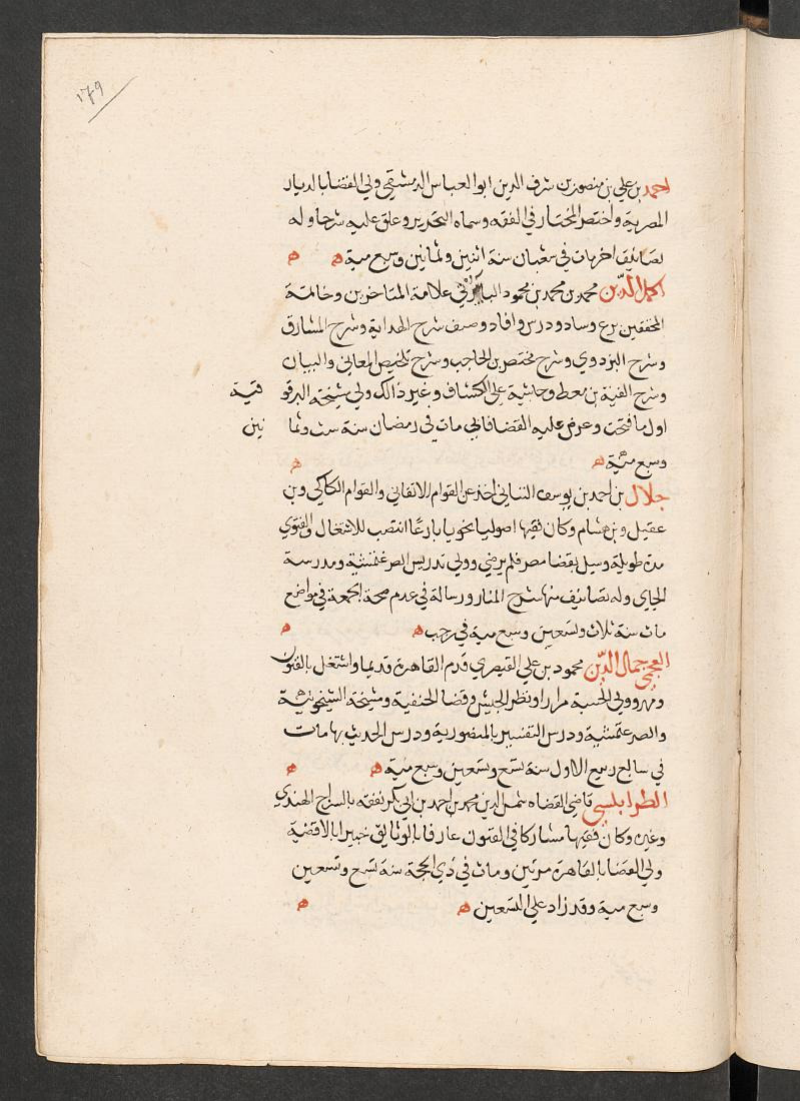 ١٧٩
احمد بن علي بن منصور بن شرف الدين ابو العباس الدمشقي ولي القضا بالديار
المصرية واختصر المختار في الفقه وسماه التحرير وعلق عليه شرحا وله
تصانيف اخر مات في شعبان سنة اثنين وثمانين وسبع مية ه ه
اكمل الدين محمد بن محمد بن محمود البابرتي علامة المتاخرين وخاتمة
المحققين برع وساد ودرس وافاد وصنف شرح الهداية وشرح المشارق
وشرح البزدوي وشرح مختصر بن الحاجب وشرح تلخيص المعاني والبيان
وشرح الفية بن معط وحاشية على الكشاف وغير ذالك ولي مشيخة البرقو قية
اول ما فتحت وعرض عليه القضا فابى مات في رمضان سنة ست وثما نين
وسبع مئية ه ه
جلال بن احمد بن يوسف التباني اخذ عن القوام الاتقاني والقوام الكاكي وبن
عقيل وبن هشام وكان فقيها اصوليا نحويا بارعا انتصب للاشغال والفتوي
مدة طويلة وسيل بقضا مصر فلم يرضي وولي تدريس الصرغتشية ومدرسة
الجاي وله تصانيف منها شرح المنار ورسالة في عدم صحة الجمعة في مواضع
مات سنة ثلاث وتسعين وسبع مية في رجب ه ه
العجمي جمال الدين محمود بن علي القيصري قدم القاهرة قديما واشتغل بالفنون
ومهر وولي الحسبة مرارا ونظر الجيش وقضا الحنفية ومشيخة الشيخونية
والصرغتمشية ودرس التفسير بالمنصورية ودرس الحديث بها مات
في سابع ربيع الاول سنة تسع وتسعين وسبع مية ه ه
الطرابلسي قاضي القضاه شمس الدين محمد بن احمد بن ابي بكر تفقه بالسراج الهندي
وغيره وكان فقيها مشاركا في الفنون عارفا بالوثايق خبيرا بالاقضية
ولي القضا بالقاهرة مرتين ومات في ذي الحجة سنة تسع وتسعين
وسبع مية وقد زاد علي السبعين ه ه